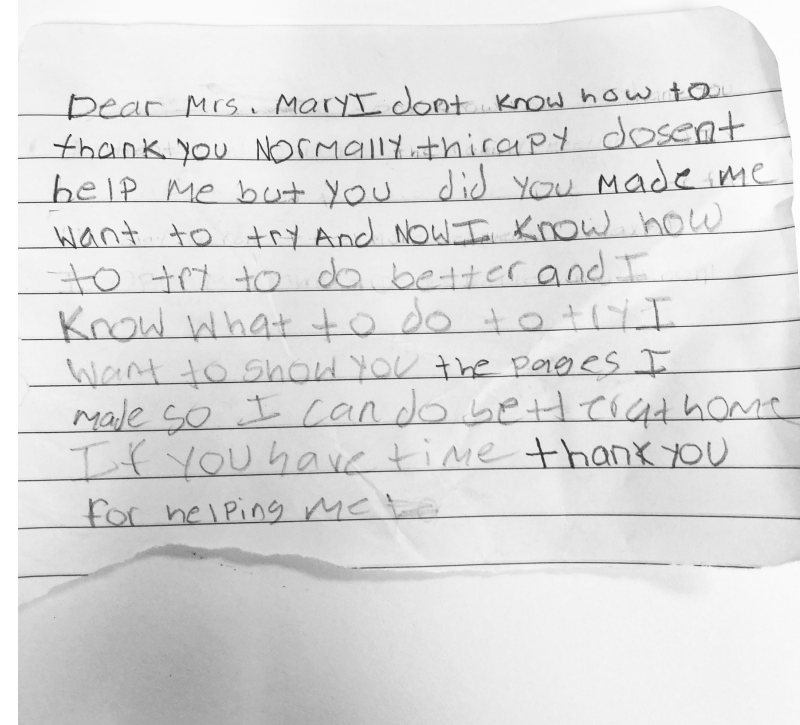 Dear Mrs. Mary I dont know how to
thank you Normally thirapy dosent
help me but you did you made me
want to try And Now I know how
to try to do better and I
Know what to do to try I
want to show you the pages I
made so I can do better at home
If you have time thank you
for helping me